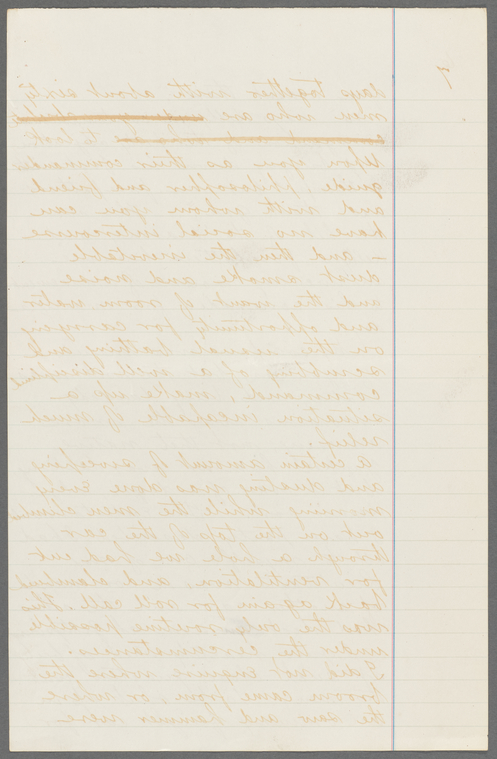 7
days together with about sixty
men who are
to look
upon you as their commander
guide, philosopher and friend
and with whom you can
have no social intercourse
– and then the inevitable
dust, smoke and noise
and the want of room, water
and opportunity for carrying
on the usual bathing and
scrubbing of a well disciplined
command, make up a
situation incapable of much
relief.
A certain amount of sweeping
and dusting was done every
morning while the men climbed
out on the top of the car
through a hole we had cut
for ventilation, and clambered
back again for roll call. This
was the only routine possible
under the circumstances.
I did not enquire where the
broom came from, or where
the saw and hammer were